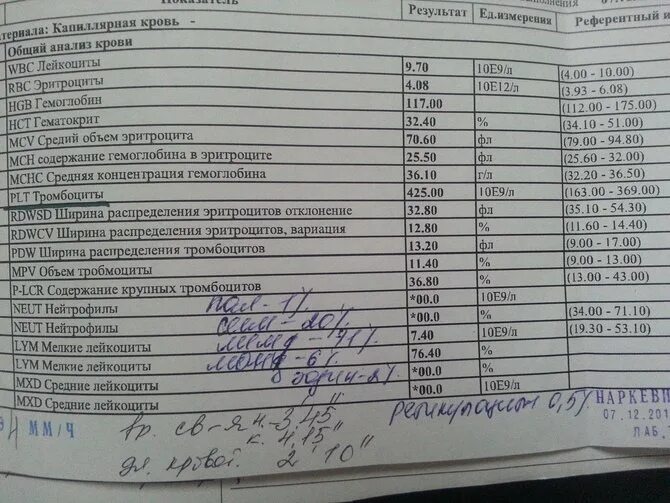 Показатель
Результат Ед.измерения Референтный и
Материала: Капиллярная кровь -
Общий анализ крови
WBC Лейкоциты 9.70 10Е9/л (4.00 - 10.00)
RBC Эритроциты 4.08 10Е12/л (3.93 - 6.08)
HGB Гемоглобин 117.00 (112.00 - 175.00)
HCT Гематокрит 32.40 % (34.10 - 51.00)
MCV Средий объем эритроцита 70.60 фл (79.00 - 94.80)
MCH содержание гемоглобина в эритроците 25.50 фл (25.60 - 32.00)
MCHC Средняя концентрация гемоглобина 36.10 г/л (32.20 - 36.50)
PLT Тромбоциты 425.00 10Е9/л (163.00 - 369.00)
RDWSD Ширина распределения эритроцитов отклонение 32.80 фл (35.10 - 54.30)
RDWCV Ширина распределения эритроцитов, вариация 12.80 % (11.60 - 14.40)
PDW Ширина распределения тромбоцитов 13.20 фл (9.00 - 17.00)
MPV Объем тробмоциты 11.40 % (9.00 - 13.00)
P-LCR Содержание крупных тромбоцитов 36.80 % (13.00 - 43.00)
NEUT Нейтрофилы пал - 1% *00.0 10Е9/л
NEUT Нейтрофилы сегм - 20% *00.0 % (34.00 - 71.10)
LYM Мелкие лейкоциты лимф - 71% 7.40 10Е9/л (19.30 - 53.10)
LYM Мелкие лейкоциты мон - 6% 76.40 %
MXD Средние лейкоциты эозин - 2% *00.0 10Е9/л
MXD Средние лейкоциты *00.0 %
ММ/Ч вр. св-я н. 3,45" ретикулоциты 0,5% НАРКЕВИ
к. 4,15" 07.12.201
дл. кровот. 2'10" ЛАБ.